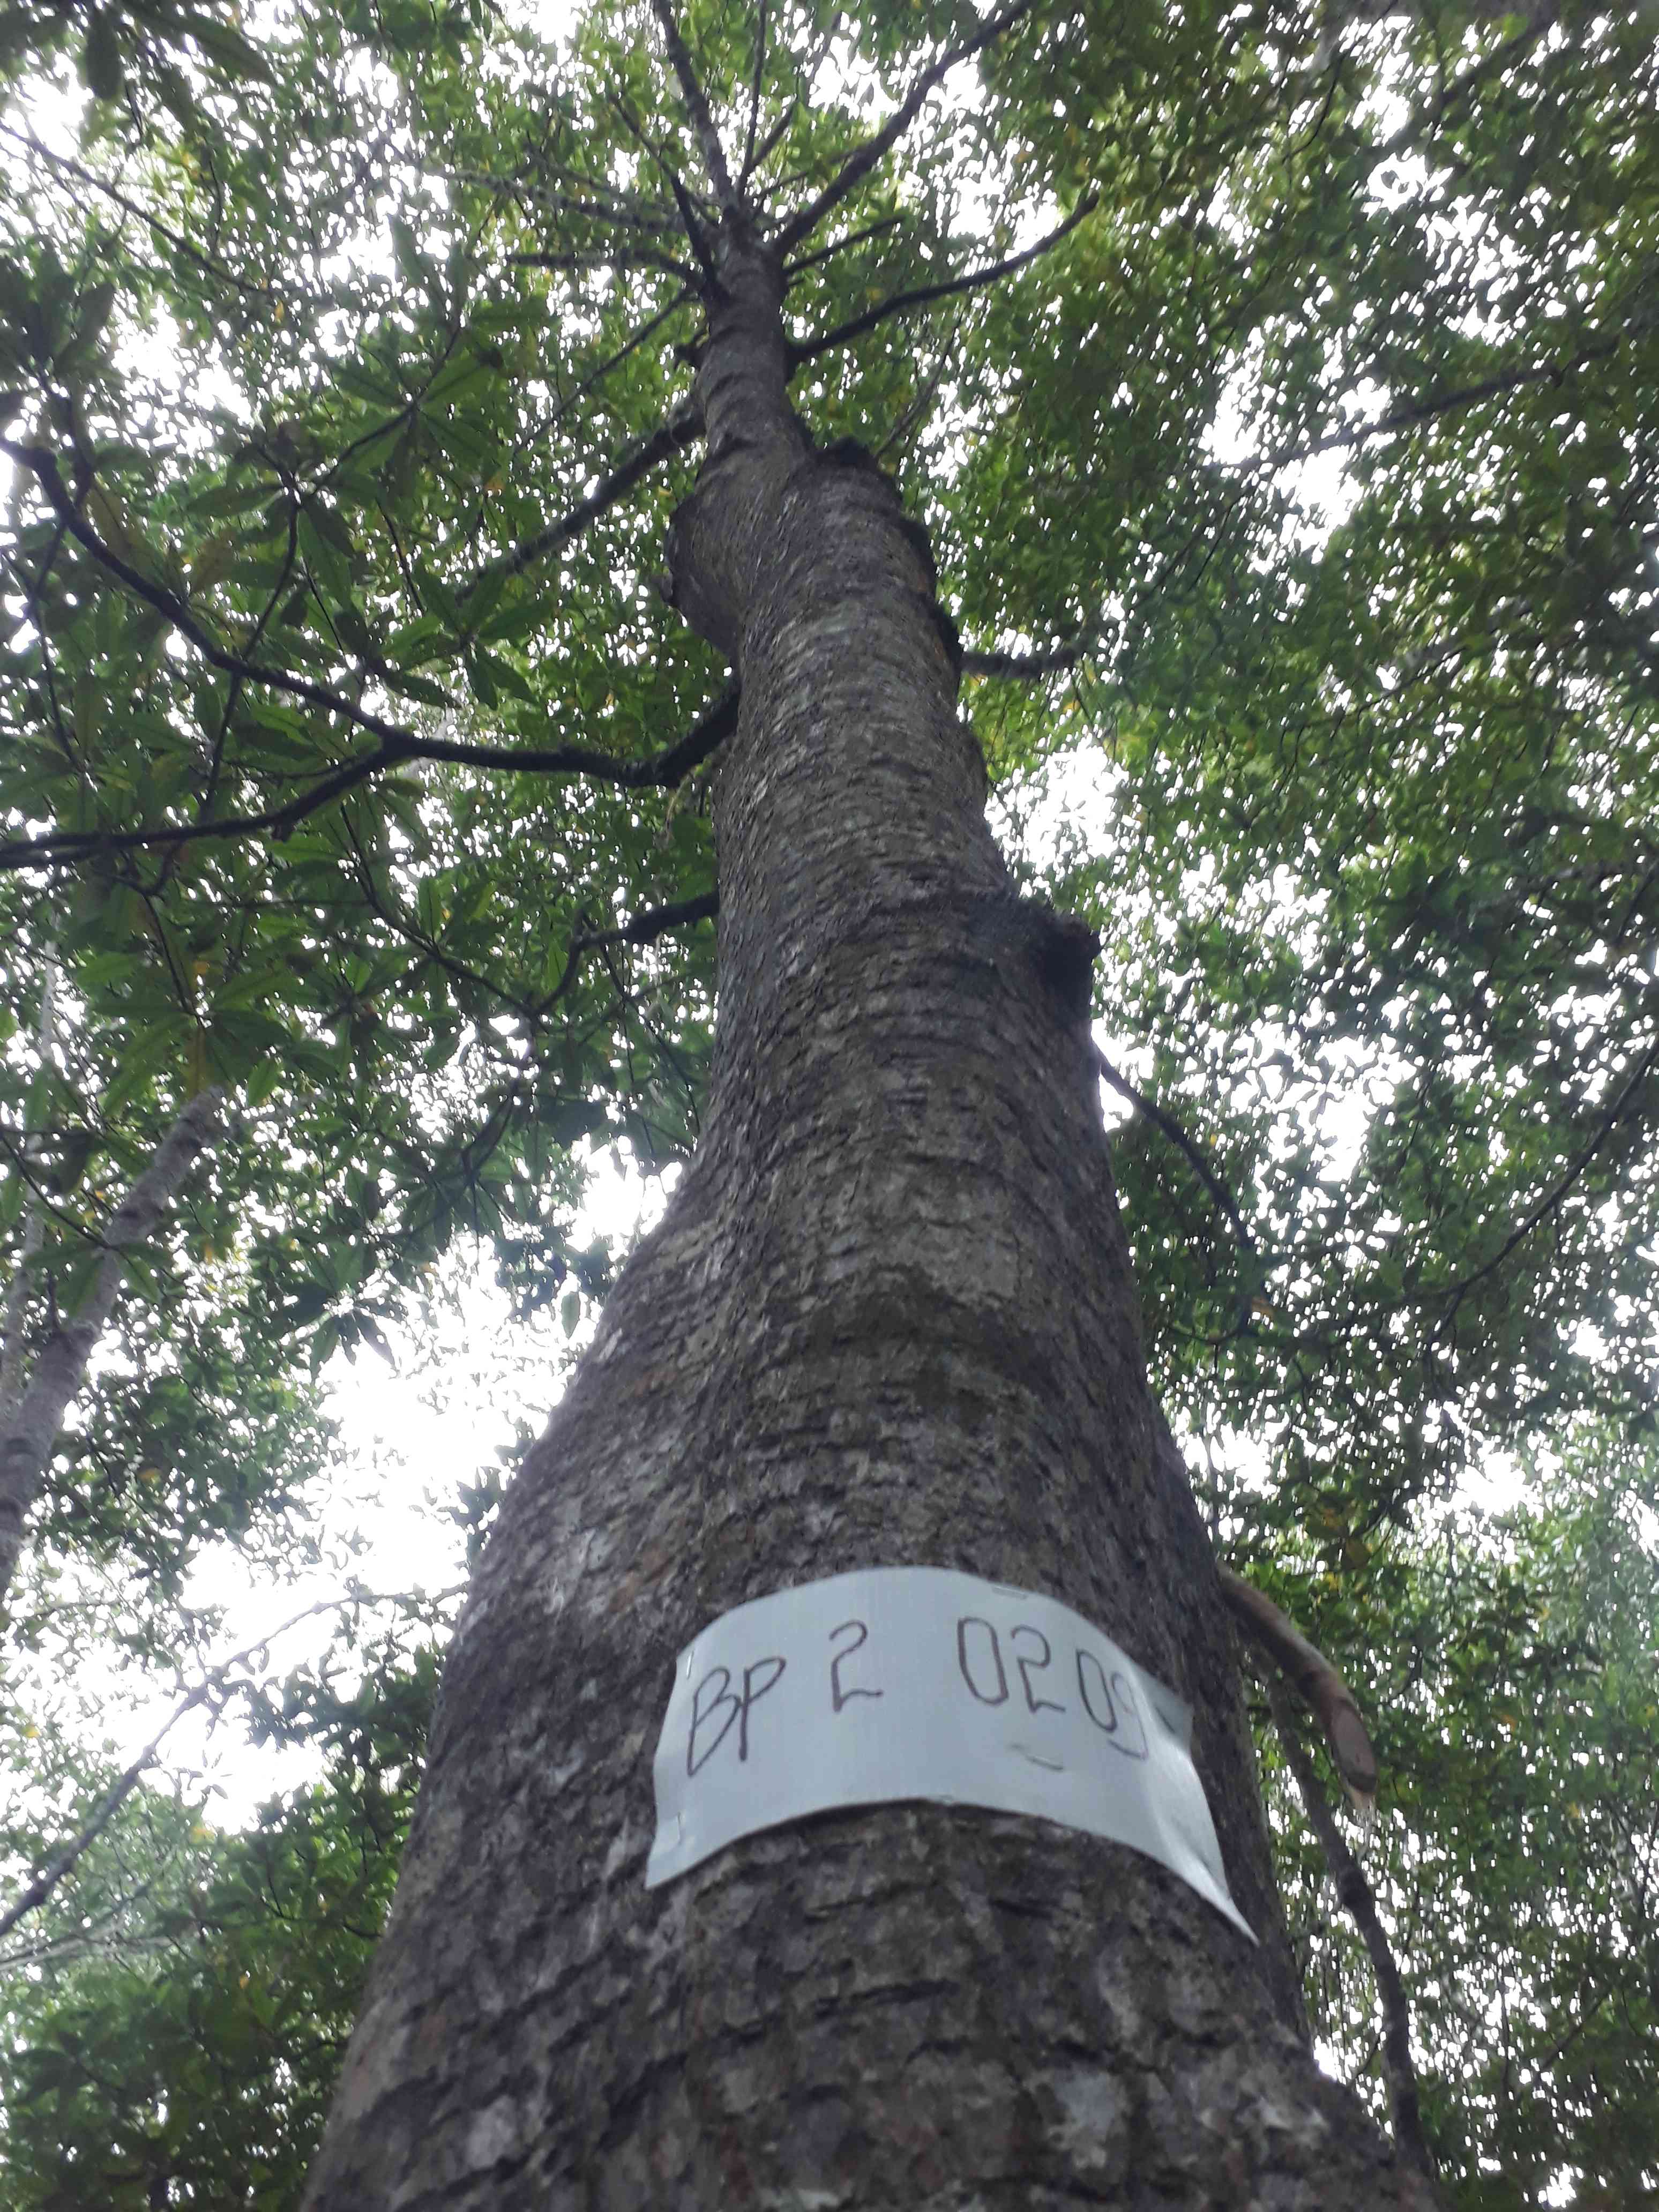 BP 2 0209